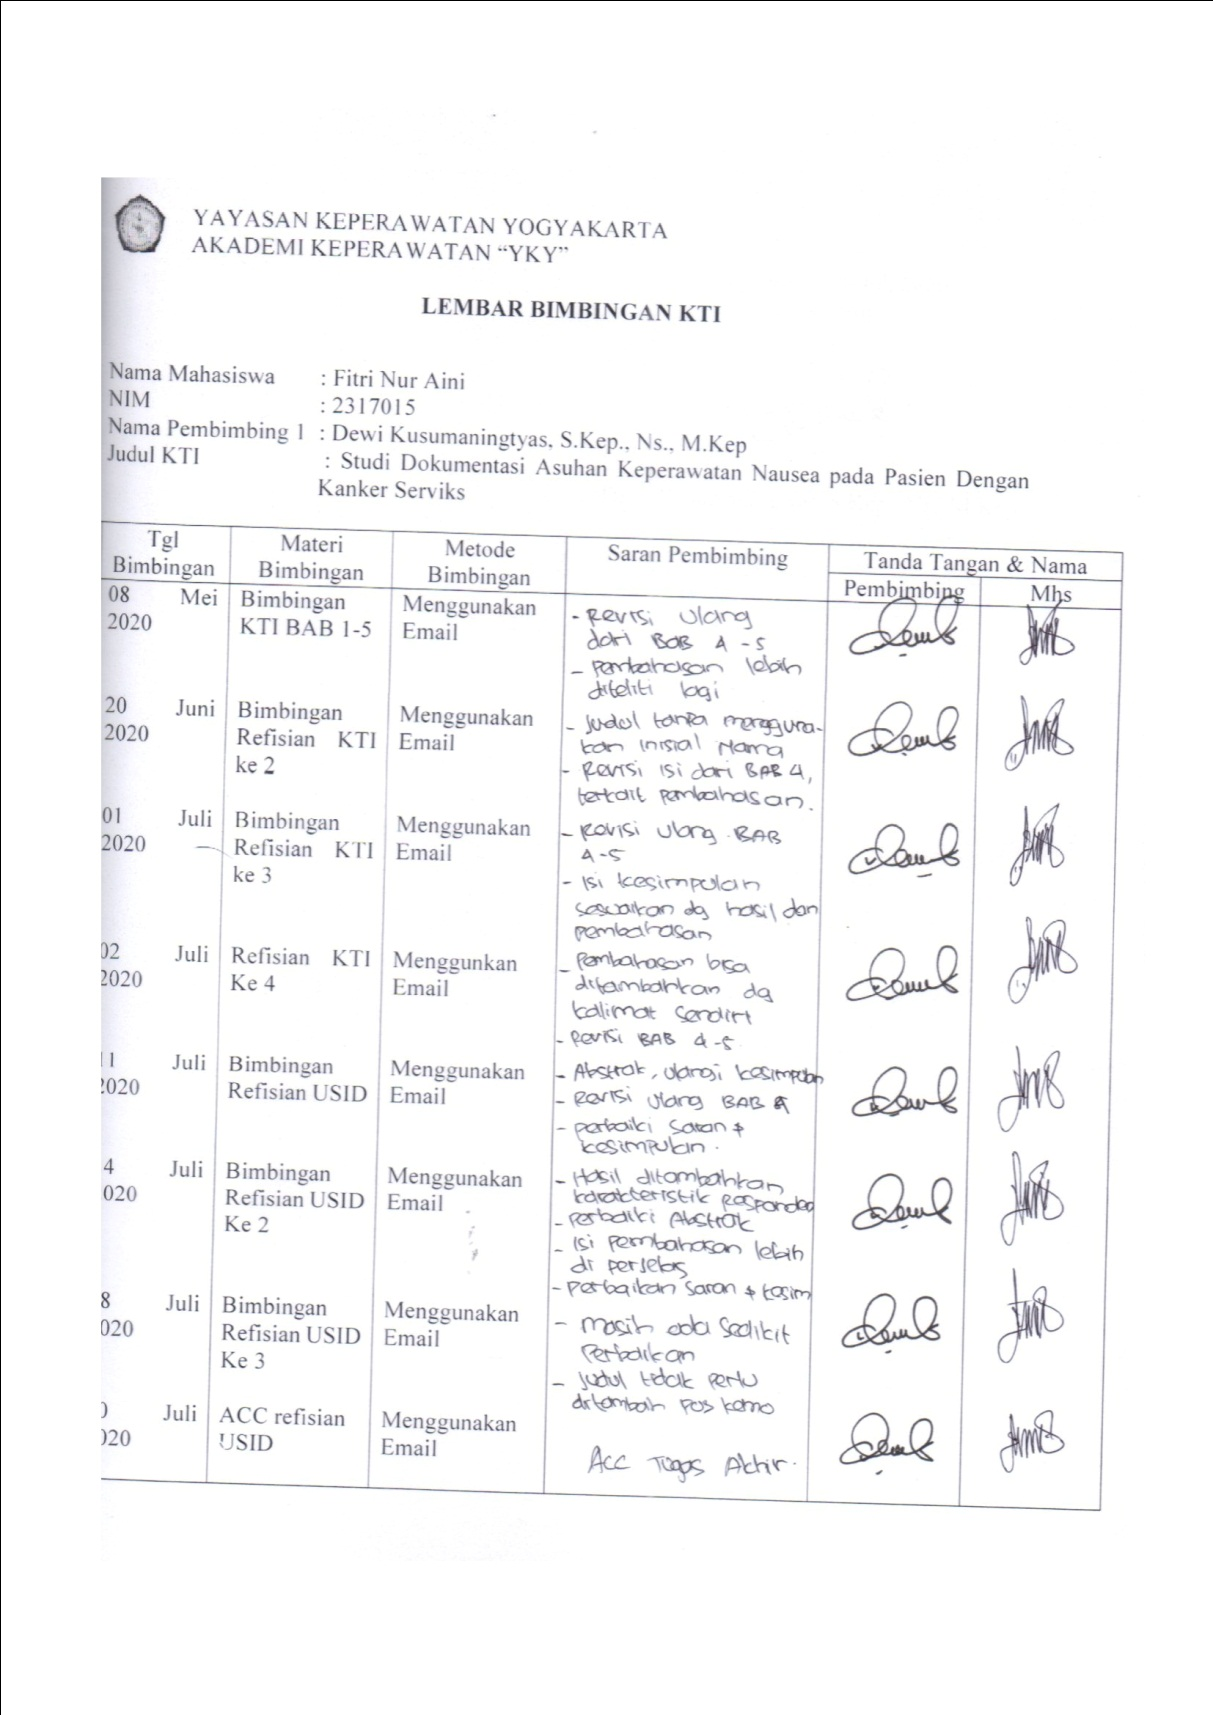 YAYASAN KEPERAWATAN YOGYAKARTA
AKADEMI KEPERAWATAN “YKY”
LEMBAR BIMBINGAN KTI
Nama Mahasiswa : Fitri Nur Aini
NIM : 2317015
Nama Pembimbing 1 : Dewi Kusumaningtyas, S.Kep., Ns., M.Kep
Judul KTI : Studi Dokumentasi Asuhan Keperawatan Nausea pada Pasien Dengan
Kanker Serviks
Tgl Bimbingan
Materi Bimbingan
Metode Bimbingan
Saran Pembimbing
Tanda Tangan & Nama
Pembimbing
Mhs
08 Mei
2020
Bimbingan
KTI BAB 1-5
Menggunakan
Email
- Revisi Ulang
dari BAB 4 -5
- Pembahasan lebih
diteliti lagi
20 Juni
2020
Bimbingan
Refisian KTI
ke 2
Menggunakan
Email
- Judul tanpa mengguna-
kan Inisial Nama
- Revisi isi dari BAB 4,
terkait pembahasan.
01 Juli
2020
Bimbingan
Refisian KTI
ke 3
Menggunakan
Email
- Revisi Ulang BAB
4-5
- Isi kesimpulan
sesuaikan dg hasil dan
pembahasan
02 Juli
2020
Refisian KTI
Ke 4
Menggunkan
Email
- Pembahasan bisa
ditambahkan dg
kalimat sendiri
- Revisi BAB 4 -5
11 Juli
2020
Bimbingan
Refisian USID
Menggunakan
Email
- Abstrak, ulangi kesimpulan
- Revisi Ulang BAB 4
- perbaiki saran &
kesimpulan.
4 Juli
020
Bimbingan
Refisian USID
Ke 2
Menggunakan
Email
- Hasil ditambahkan
karakteristik Responden
- Perbaiki Abstrak
- Isi pembahasan lebih
di perjelas
- Perbaikan saran & kesim
8 Juli
020
Bimbingan
Refisian USID
Ke 3
Menggunakan
Email
- masih ada Sedikit
Perbaikan
- Judul tidak perlu
ditambah pos kemo
0 Juli
020
ACC refisian
USID
Menggunakan
Email
Acc Tugas Akhir.